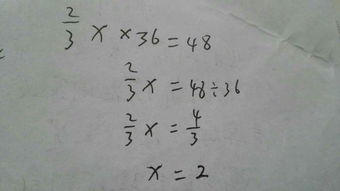 2/3 x × 36 = 48
2/3 x = 48 ÷ 36
2/3 x = 4/3
x = 2